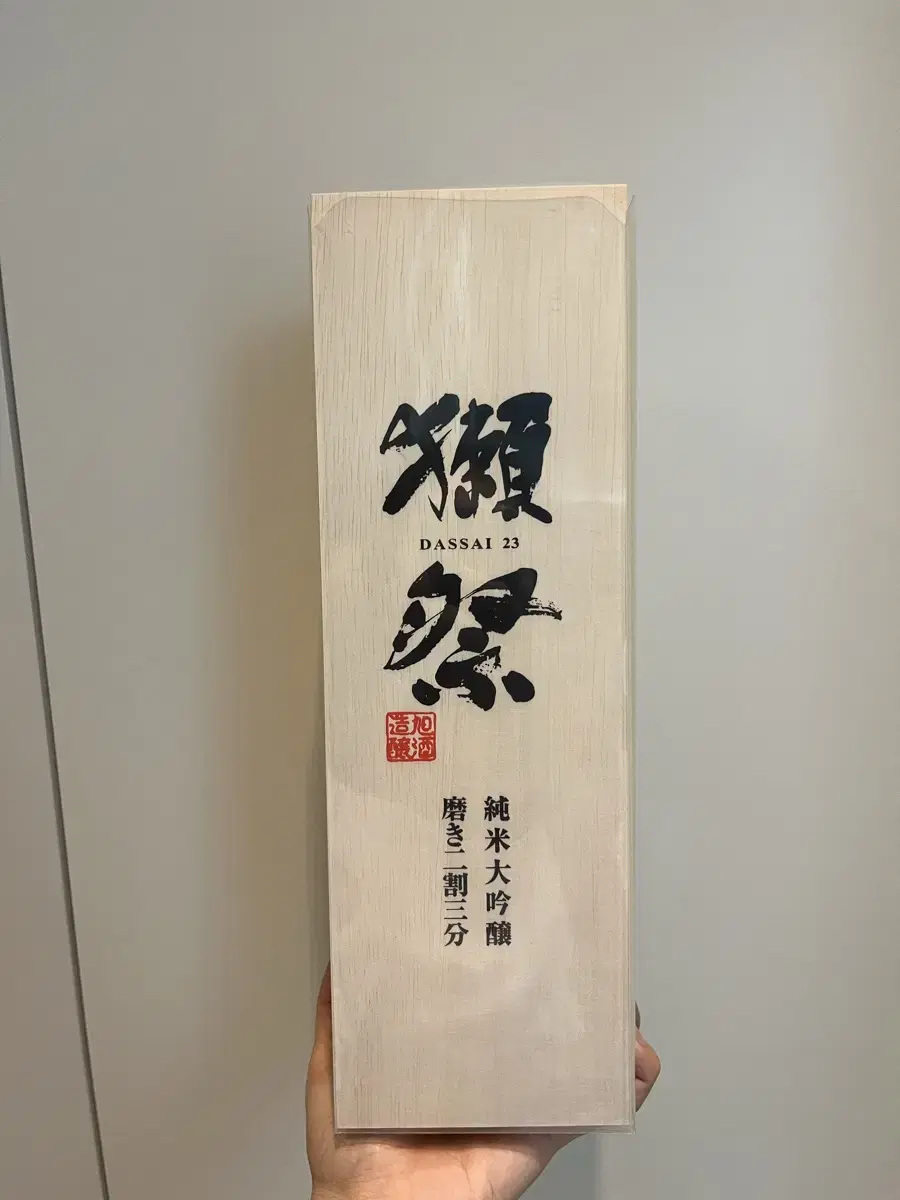 獺
DASSAI 23
祭
旭酒
造醸
純米大吟醸
磨き二割三分